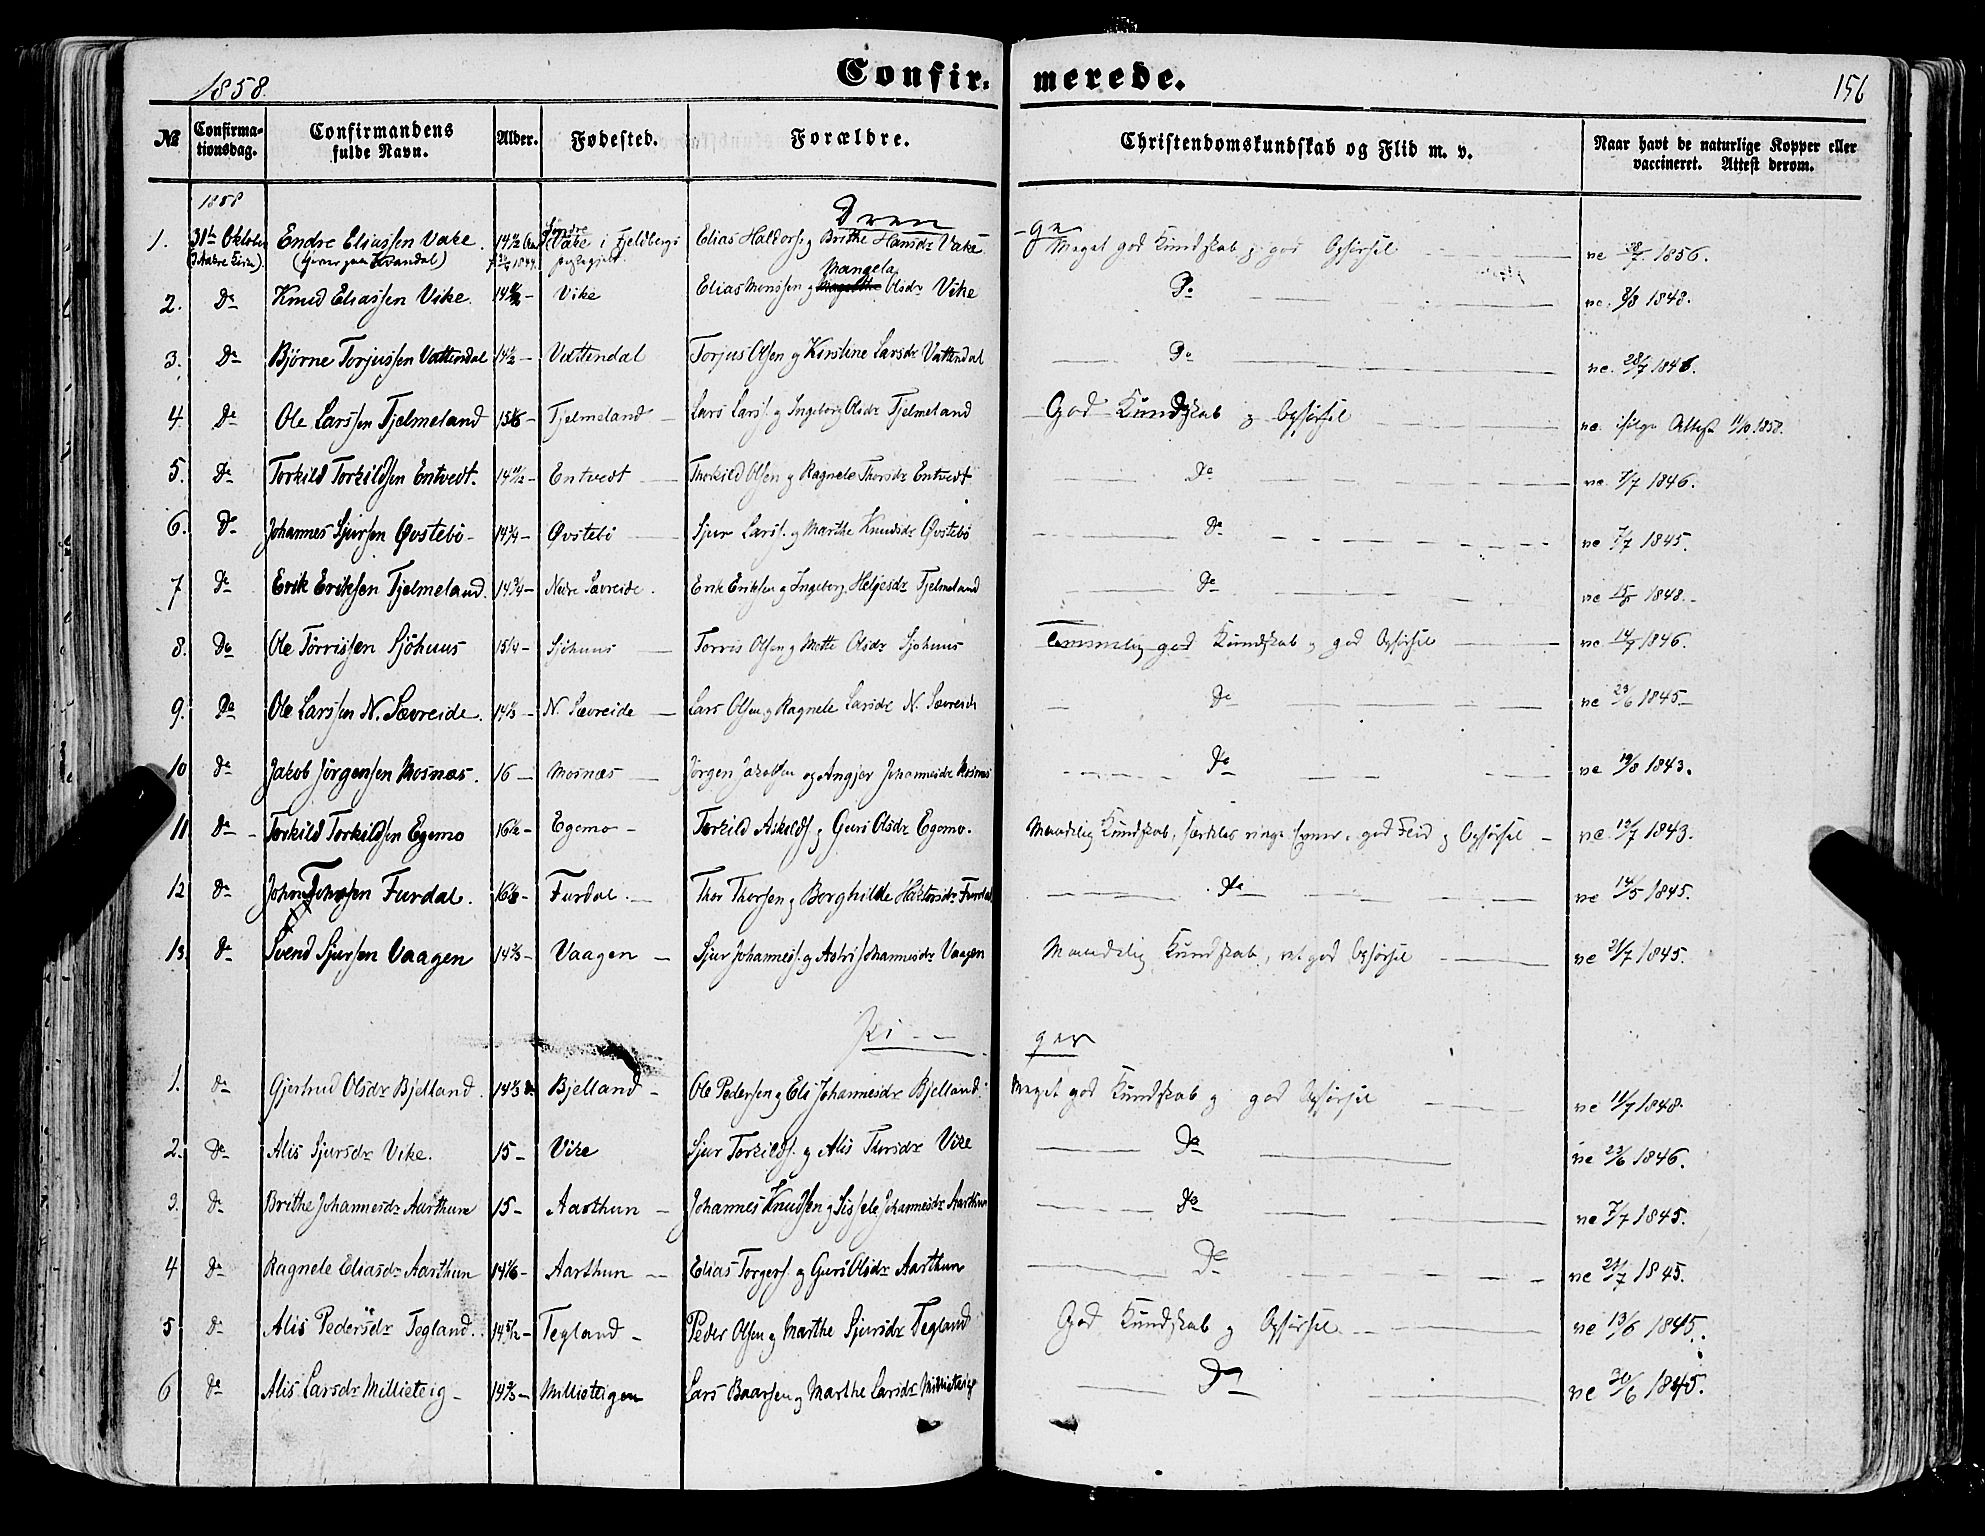 1858. Confir- merede. 156
№ Confirma- tionsdag. Confirmandens fulde Navn. Alder. Fødested. Forældre. Christendomskundskab og Flid m. v. Naar havt de naturlige Kopper eller vaccineret. Attest derom.
1858
Dren -ge
1. 31te Oktober Endre Eliassen Vake. 14 1/2 Søndre Vake i Fjeldbergs Elias Haldors. og Brithe Hansdr Vake Meget god Kundskab og god Opførsel vc 1856.
(hjemme paa Kvandal) Præstegjeld
Mangela
2. Do Knud Eliassen Vike. Vike Elias Monssen og Olsdr Vike Do vc. 8/8 1848.
3. Do Bjørne Torjussen Vattendal 14 1/2 - Vattendal Torjus Olsen og Kirstine Larsdr Vattendal Do vc. 28/7 1846.
4. Do Ole Larssen Tjelmeland 15 - Tjelmeland Lars Lars. og Ingeborg Olsdr Tjelmeland God Kundskab og Opførsel vc. ifølge Attest 1858.
5. Do Torkild Torkildsen Entvedt. 14 - Entvedt Thorkild Olsen og Ragnele Thorsdr Entvedt Do vc. 7/7 1846.
6. Do Johannes Sjursen Øvstebö 14 3/4 - Øvstebö Sjur Lars. og Marthe Knudsdr Øvstebö Do vc 7/7 1845.
7 Do Erik Eriksen Tjelmeland. 14 3/4 - Nedre Sævreide. Erik Eriksen og Ingeborg Helgesdr Tjelmeland Do vc 1848.
8. Do Ole Törrissen Sjöhuus 15 1/4 - Sjöhuus Torris Olsen og Mette Olsdr Sjöhuus Temmelig god Kundskab og god Opførsel vc 14/7 1846.
9. Do Ole Larssen N. Sævreide. 14 - N. Sævreide Lars Olsen og Ragnele Larsdr N. Sævreide Do vc 23/6 1845
10 Do Jakob Jörgensen Mosnæs. 16 - Mosnæs Jörgen Jakobsen og Angjer Johannesdr Mosnæs Do vc 19/8 1843.
11 Do Torkild Torkildsen Egemo 16 1/2 - Egemo - Torkild Askilds. og Guri Olsdr Egemo. Maadelig Kundskab, særdeles ringe Evner, god Flid og Opførsel - vc. 1843.
12 Do Furdal. 16 - Furdal. Thor Thorsen og Borghilde Furdal Do vc 14/5 1845.
13 Do Svend Sjursen Vaagen 14 2/3 - Vaagen Sjur Johanness. og Astri Johannesdr Vaagen Maadelig Kundskab, ret god Opførsel vc 21/7 1845.
Pi - - ger
1. Do Gjertrud Olsdr Bjelland. 14 Bjelland - Ole Pedersen og Eli Johannesdr Bjelland. Meget god Kundskab og god Opførsel vc 11/7 1848.
2. Do Alis Sjursdr Vike. 15 - Vike Sjur Torkilds. og Alis Thorsdr Vike Do vc 23/6 1846.
3. Do Brithe Johannesdr Aarthun 15 - Aarthun - Johannes Knudsen og Sissele Johannesdr Aarthun Do vc 7/7 1845.
4 Do Ragnele Eliasdr Aarthun 14 - Aarthun Elias Torgers. og Guri Olsdr Aarthun Do vc 21/7 1845.
5 Do Alis Pedersdr Tegland. 14 5/12 - Tegland - Peder Olsen og Marthe Sjursdr Tegland God Kundskab og Opførsel vc 13/6 1845.
6 Do Alis Larsdr Millieteig 14 - Millieteigen Lars Baarsen og Marthe Larsdr Millieteig Do vc 30/6 1845.